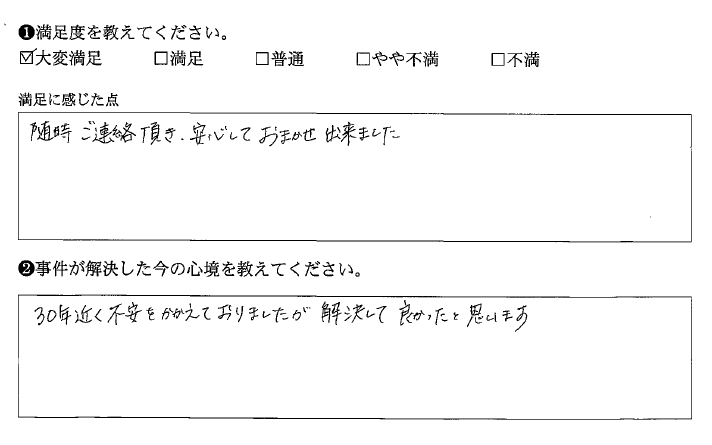 ❶満足度を教えてください。
☑大変満足 □満足 □普通 □やや不満 □不満
満足に感じた点
随時ご連絡頂き、安心しておまかせ出来ました
❷事件が解決した今の心境を教えてください。
30年近く不安をかかえておりましたが解決して良かったと思います